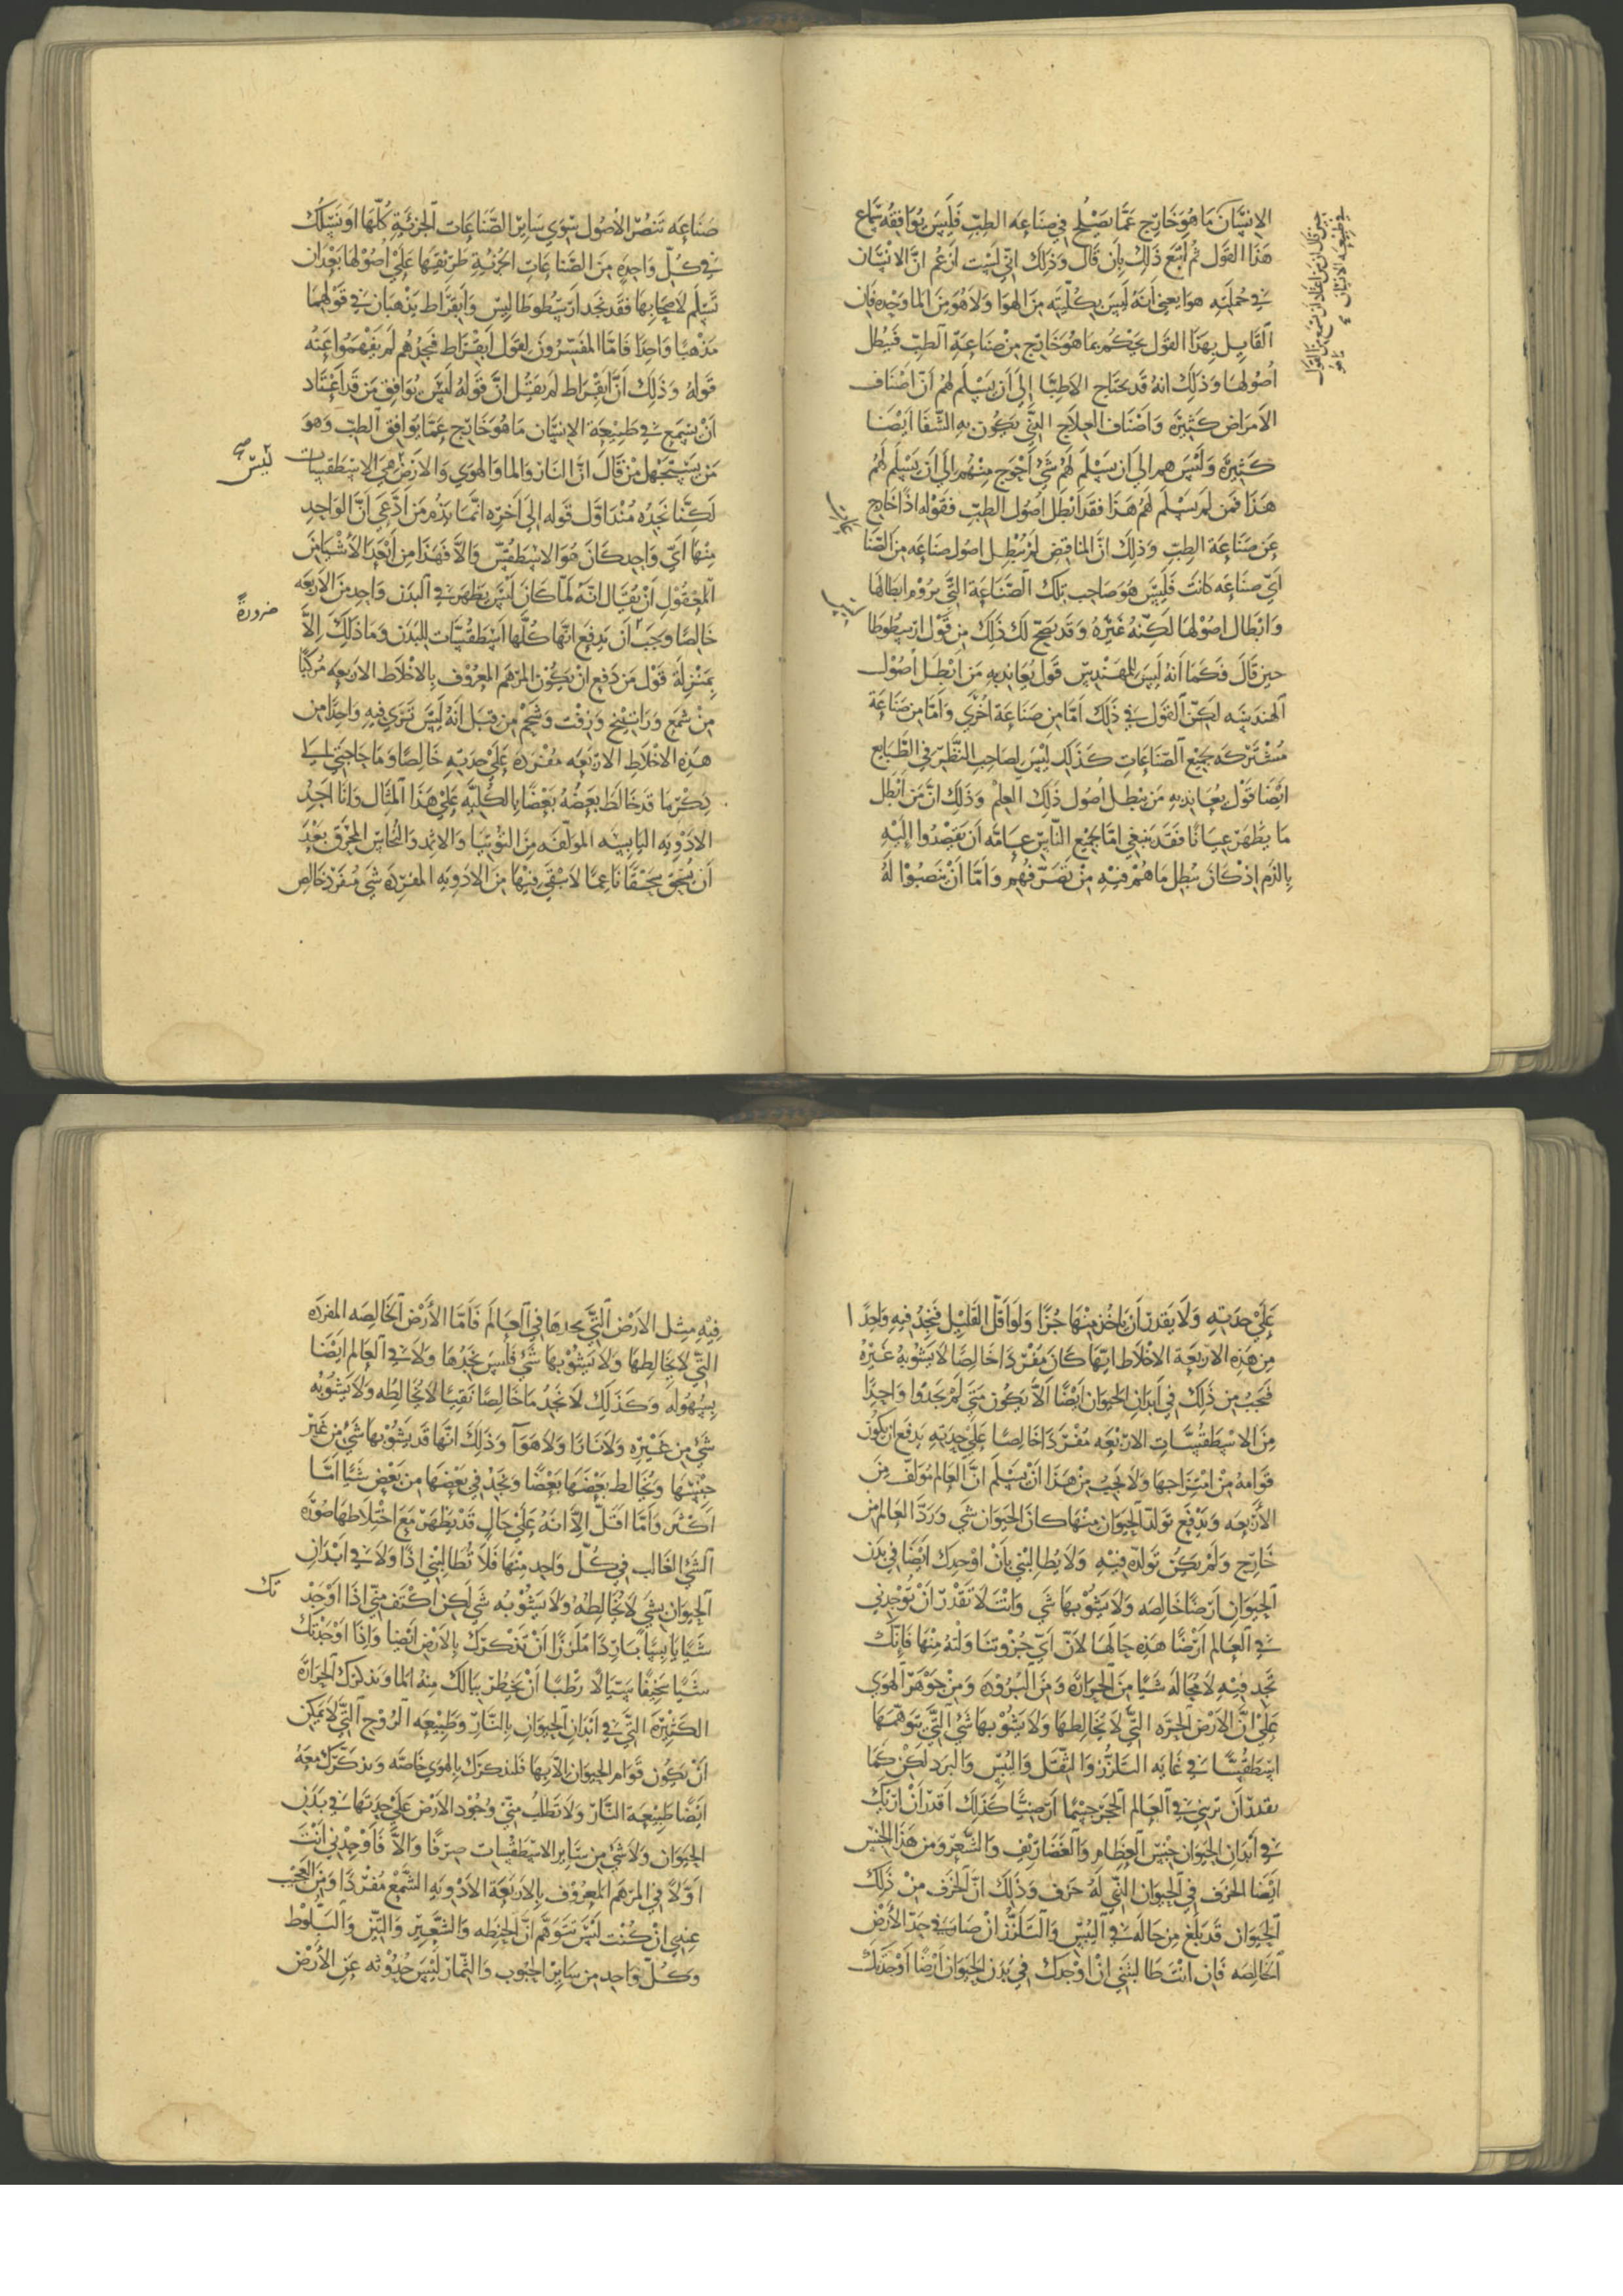 الانسان ما هو خارج عمّا يصلح في صناعه الطبّ فليس يوافقه سماع
هذا القول ثم أتبع ذلك بأن قال وذلك انّي لست ازعم انّ الانسان
في جملته هوا يعني أنه ليس بكلّيته من الهوا ولا هو من الما وحده فان
القايل بهذا القول يحكم بما هو خارج من صناعة الطبّ فيبطل
أصولها وذلك انه قد يحتاج الاطبّا إلى أن يسلّم لهم أنّ اصناف
الامراض كثيرة واصناف العلاج التي يكون به الشفا ايضا
كثيرة وليس هم الى ان يسلم لهم شي أحوج منهم إلى أن يسلم لهم
هذا فمن لم يسلّم لهم هذا فقد أبطل اصول الطبّ فقوله اذا خارج
عن صناعة الطبّ وذلك انّ المناقض لمن يبطل اصول صناعه من الصنا
ايّ صناعه كانت فليس هو صاحب تلك الصّناعة التي يروم ابطالها
وابطال اصولها لكنّه غيره وقد يصحّ لك ذلك من قول ارسطوطا
حين قال فكما أنه ليس للمهندس قول يعاند به من ابطل أصول
الهندسه لكنّ القول في ذلك امّا من صناعة اخرى وامّا من صناعة
مشتركه لجميع الصّناعات كذلك ليس لصاحب النّظر في الطّبايع
ايضا قول يعاند به من يبطل أصول ذلك العلم وذلك انّ من أبطل
ما يظهر عيانا فقد ينبغي امّا لجميع النّاس عامّه أن يقصدوا إليه
بالذم اذ كان يبطل ما هم فيه من تصرّفهم وامّا أن ينصبوا له
حين قال ان من اعتاد ان يسمع من القول
في طبيعه الانسان ما هو
صناعه تنصر الأصول سوى ساير الصّناعات الجزئيّة كلّها او نسلك
في كلّ واحده من الصّناعات الجزئية طريقها على أصولها بعد ان
تسلّم لاصحابها فقد نجد ارسطوطاليس وابقراط يذهبان في قولهما
مذهبا واحدا فامّا المفسّرون لقول ابقراط فنجدهم لم يفهموا عنه
قوله وذلك أنّ ابقراط لم يقل انّ قوله ليس يوافق من قد اعتاد
أن يسمع في طبيعة الانسان ما هو خارج عمّا يوافق الطبّ وهو
من يستجهل من قال انّ النار والما والهوى والارض هي الاسطقسات
ليس
لكنّا نجده منذ اوّل قوله إلى اخره انّما يذم من ادّعى أنّ الواحد
منها ايّ واحد كان هو الاسطقسّ والاّ فهذا من ابعد الأشيا من
المعقول أن يقال انّه لمّا كان ليس يظهر في البدن واحد من الاربعه
خالصا وجب أن يدفع انّها كلّها اسطقسّات للبدن وما ذلك إلاّ
ضرورةً
بمنزلة قول من دفع ان يكون المرهم المعروف بالاخلاط الاربعه مركّبا
من شمع وراتينج وزفت وشحم من قبل انه ليس ترى فيه واحدا من
هذه الاخلاط الاربعه مفرده على حدته خالصا وما حاجتي إلى
ذكر ما قد خالط بعضه بعضا بالكليّه على هذا المثال وانا اجد
الادويه اليابسه المولّفه من التوتيا والاثمد والنّحاس المحرق بعد
أن تسحق سحقا ناعما لا يبقى فيها من الادويه المفرده شي مفرد خالص
على حدته ولا يقدر أن ياخذ منها جزا ولو اقلّ القليل فنجد فيه واحدا
من هذه الاربعة الاخلاط ايّها كان مفردا خالصا لا يشوبه غيره
فيجب من ذلك في ابدان الحيوان ايضا الاّ يكون متى لم يجدوا واحدا
من الاسطقسّات الاربعه مفردا خالصا على حدته يدفع ان يكون
قوامه من امتزاجها ولا يجب من هذا أن يسلم انّ العالم مولّف من
الأربعه ويدفع تولّد الحيوان منها كان الحيوان شي ورد العالم من
خارج ولم يكن تولّده فيه ولا يطالبني بأن اوجدك ايضا في بدن
الحيوان ارضا خالصه ولا يشوبها شي وانت لا تقدر أن توجدني
في العالم ارضا هذه حالها لأن ايّ جزو تناولته منها فإنّك
تجد فيه لا محاله شيا من الحرارة ومن البروده ومن جوهر الهوى
على انّ الارض الحرّه التي لا يخالطها ولا يشوبها شي التي نتوهّمها
اسطقسّا في غايه التلزّز والثّقل واليبس والبرد لكن كما
تقدر أن تريني في العالم الحجر جسما أرضيّا كذلك اقدر أن اريك
في أبدان الحيوان جنس العظام والغضاريف والشّعر ومن هذا الجنس
ايضا الخزف في الحيوان الذي له خزف وذلك انّ الخزف من ذلك
الحيوان قد بلغ من حاله في اليبس والتلزّز ان صار في حدّ الأرض
الخالصه فان انت طالبتني ان اوجدك في بدن الحيوان أرضا أوجدتك
فيه مثل الارض التي نجدها في العالم فامّا الأرض الخالصه المفرده
التي لا يخالطها ولا يشوبها شي فليس نجدها ولا في العالم ايضا
بسهوله وكذلك لا نجد ما خالصا نقيا لا يخالطه ولا يشوبه
شي من غيره ولا نارا ولا هوآ وذلك انّها قد يشوبها شي من غير
جنسها ويخالط بعضها بعضا ونجد في بعضها من بعض شيا امّا
اكثر وامّا اقلّ إلاّ انه على حال قد يظهر مع اختلاطها صورة
الشي الغالب في كلّ واحد منها فلا تطالبني اذا ولا في ابدان
الحيوان بشي لا يخالطه ولا يشوبه شي لكن اكتف منّي اذا اوجد
تك
شيا يابسا باردا ملزّزا أن نذكرك بالارض ايضا وإذا اوجدتك
شيا سخيفا سيّالا رطبا أن يخطر ببالك منه الما ونذكرك الحرارة
الكثيرة التي في أبدان الحيوان بالنّار وطبيعه الروح التي لا يمكن
أن يكون قوام الحيوان إلاّ بها فلنذكرك بالهوى خاصّه ونذكّرك معه
ايضا طبيعة النّار ولا تطلب منّي وجود الأرض على حدتها في بدن
الحيوان ولا شي من ساير الاسطقسات صرفا والاّ فاوجدني أنت
اوّلا في المرهم المعروف بالاربعة الأدويه الشّمع مفردا ومن العجب
عندي ان كنت ليس تتوهّم انّ الحنطه والشّعير والتّين والبلّوط
وكلّ واحد من ساير الحبوب والثّمار ليس حدوثه عن الأرض